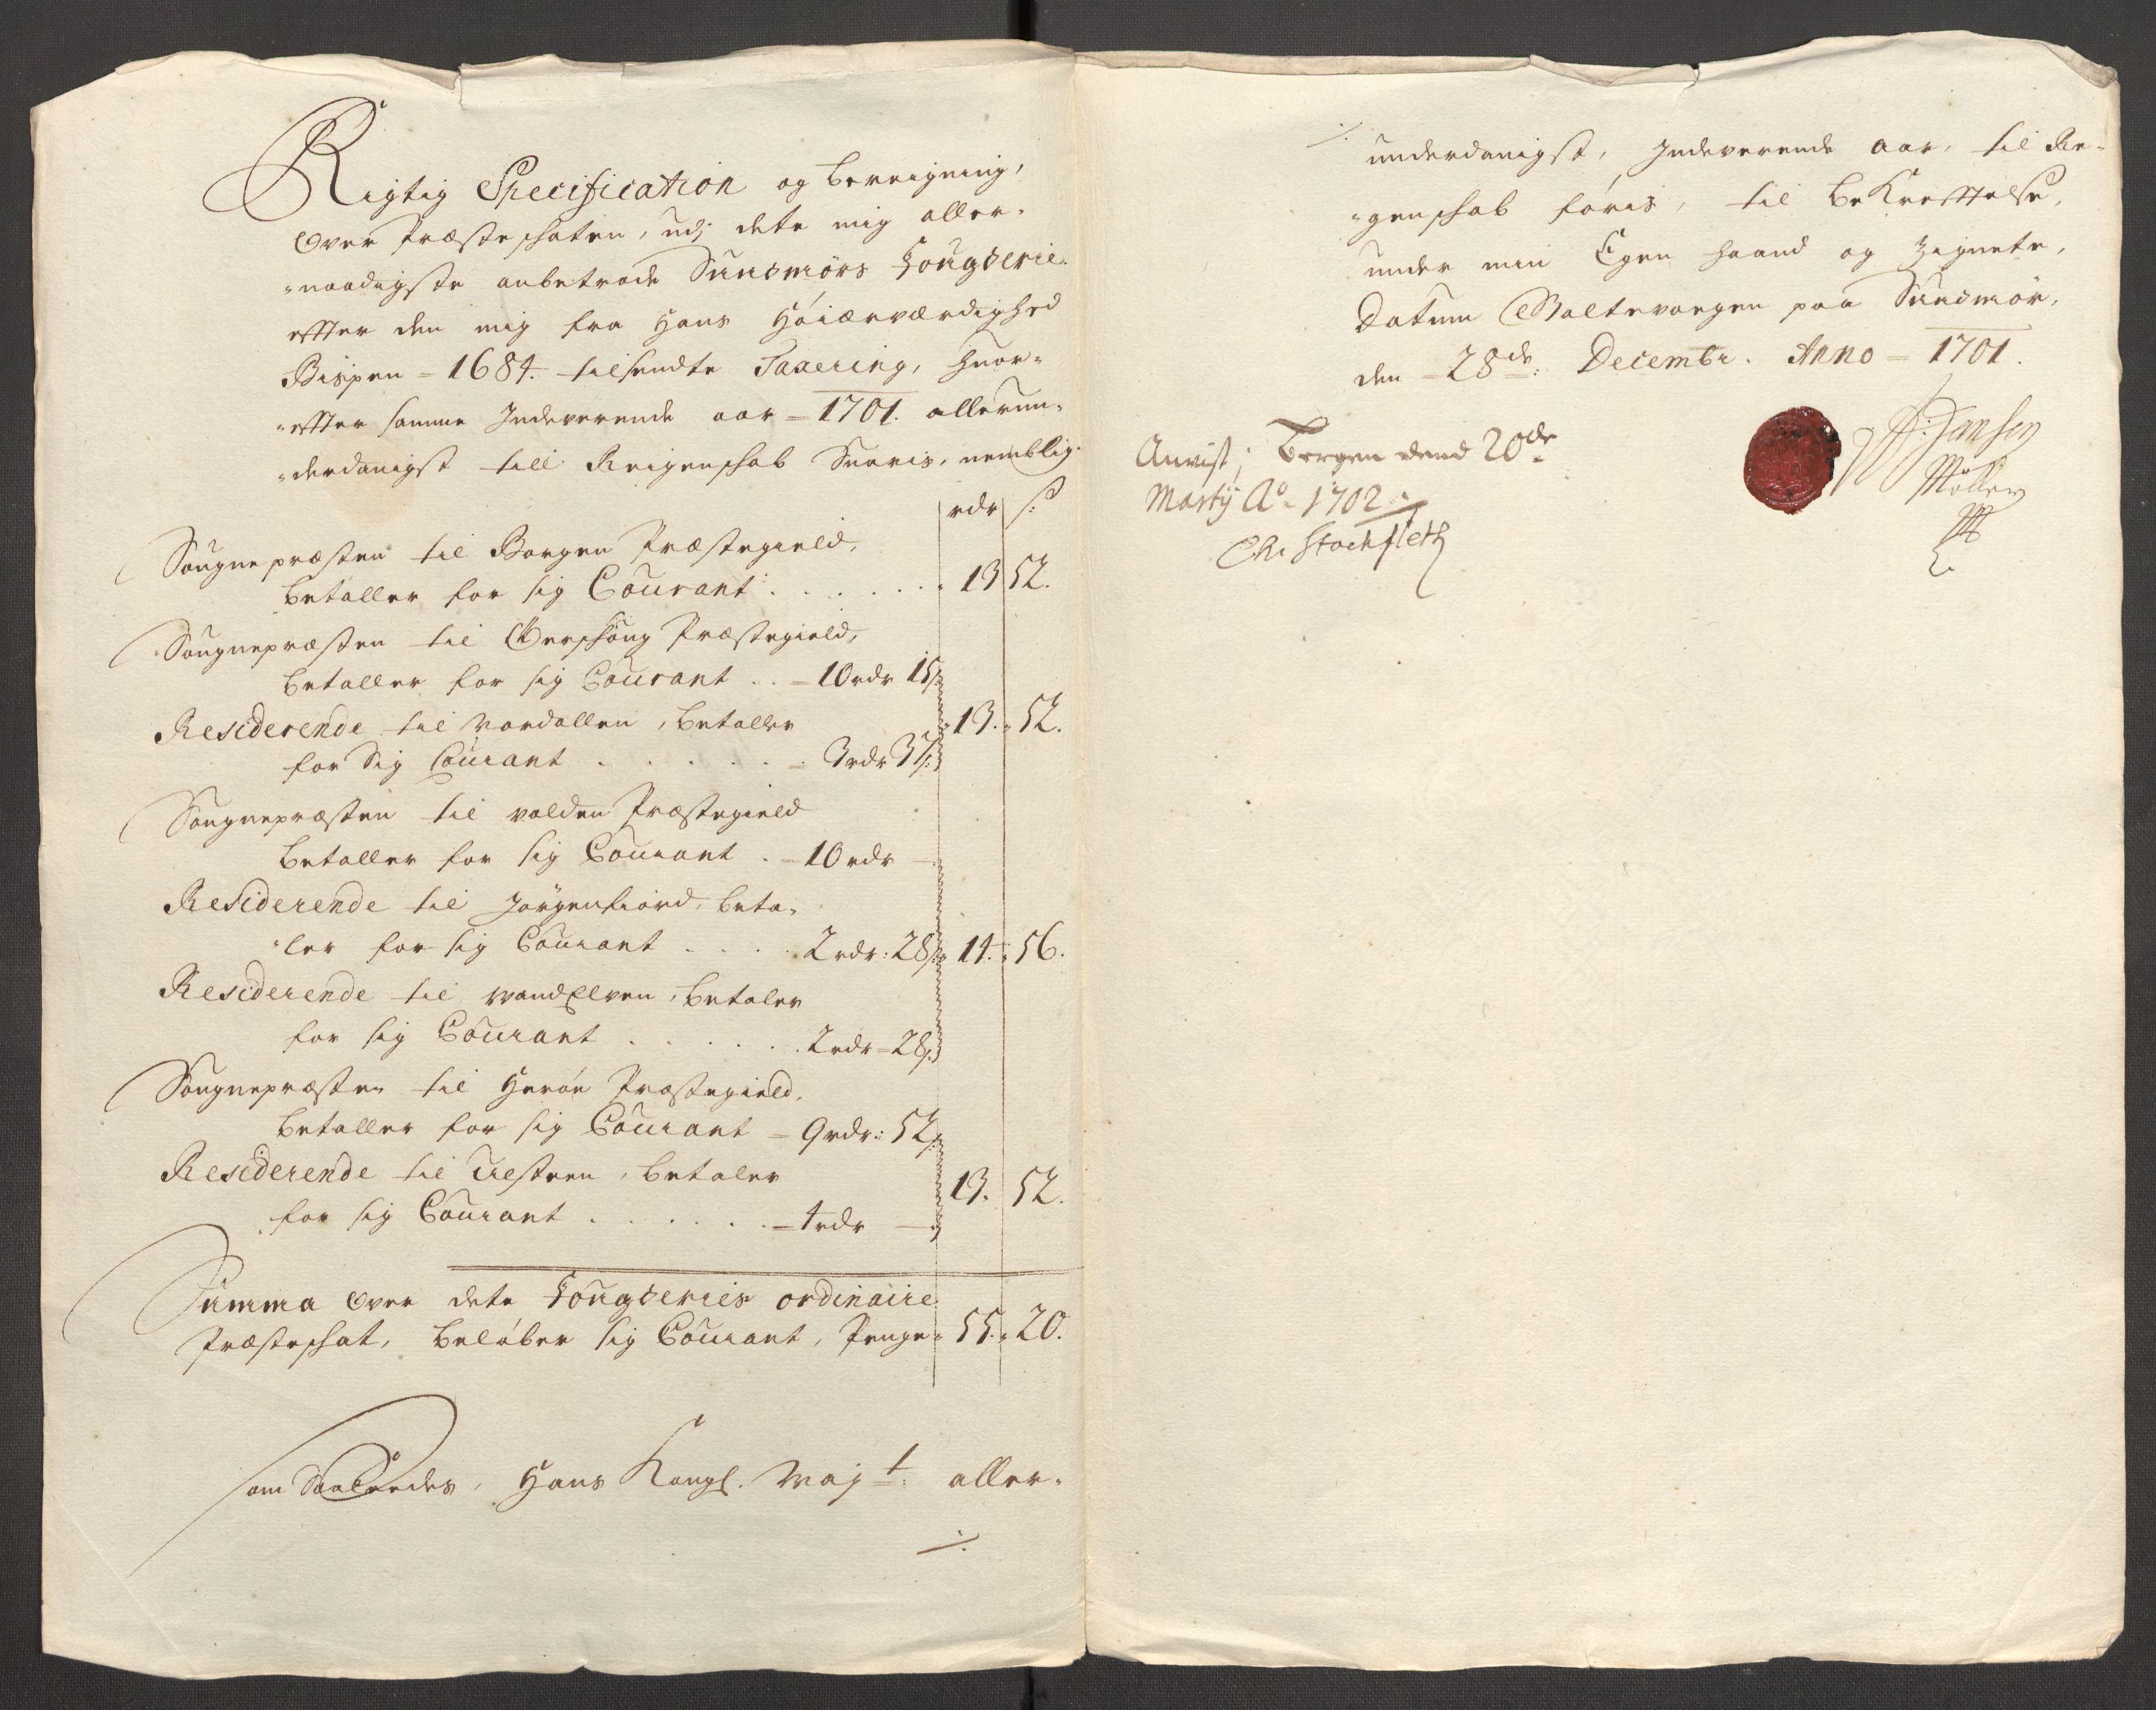 Rigtig Specification og bereigning,
Over Præsteschaten, udj dete mig aller-
naadigste anbetrode Sundmörs Fougderie
effter den mig fra Hans Höiærværdighed
Bispen - 1684. tilsendte Taxering, huor-
effter samme Indeverende aar - 1701. allerun-
derdanigst till Reigenschab Suaris, nemblig
rdr s:
Sougnepræsten til Borgen Præstegield,
betaller for sig Courant . . . . . . 13 52.
Sougnepræsten til Ørschoug Præstegield,
betaller for sig Courant . . - 10 rdr 15 s:
Residerende til Nordallen, betaller
- 13. - 52.
for Sig Courant . . . . . - 3 rdr 37 s:
Sougnepræsten til volden Præstegield
betaller for sig Courant . - 10 rdr -
Residerende til Jörgenfiord, beta-
ler for sig Courant . . . 2 rdr: 28 s: - 14. - 56.
Residerende til Vandelven, betaler
for sig Courant . . . . . 2 rdr - 28 s:
Sougnepræsten til Heröe Præstegield,
betaller for sig Courant - 9 rdr: 52 s:
Residerende til Ulsteen, betaler
13. 52.
for sig Courant . . . . . . - 4 rdr -
Summa Over dete Fougderies ordinaire
Præsteschat, belöber sig Courant, Penge - 55. - 20.
som Saaledes, Hans Kongl. Mayt: aller-
⁒
⁒ underdanigst, Indeverende aar, til Re-
genschab föris, til beKrefftelse,
under min Egen haand og Zignete,
Datum Baltevaagen paa Sundmör,
den - 28de: Decembr. Anno - 1701.
Anvist; Bergen dend 20de
Marty Ao. 1702.
Chr Stochfleth
Jansen
Möller